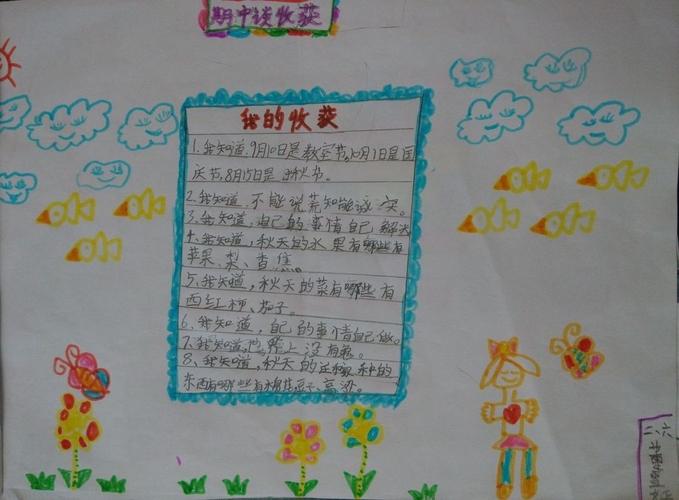 期中谈收获
我的收获
1、我知道,9月10日是教室节,10月1日是国
庆节,8月15日是 秋节。
2、我知道 不能说荒 知能诚实。
3、我知道,自己的事情自己解决
4、我知道,秋天的水果有哪些有
苹果、梨、香焦
5、我知道,秋天的菜有哪些有
西红柿、茄子。
6、我知道,自己的事情自己做。
7、我知道,世界上没有龍。
8、我知道,秋天的 的
东西有哪些有棉花、豆子、高梁。
二六